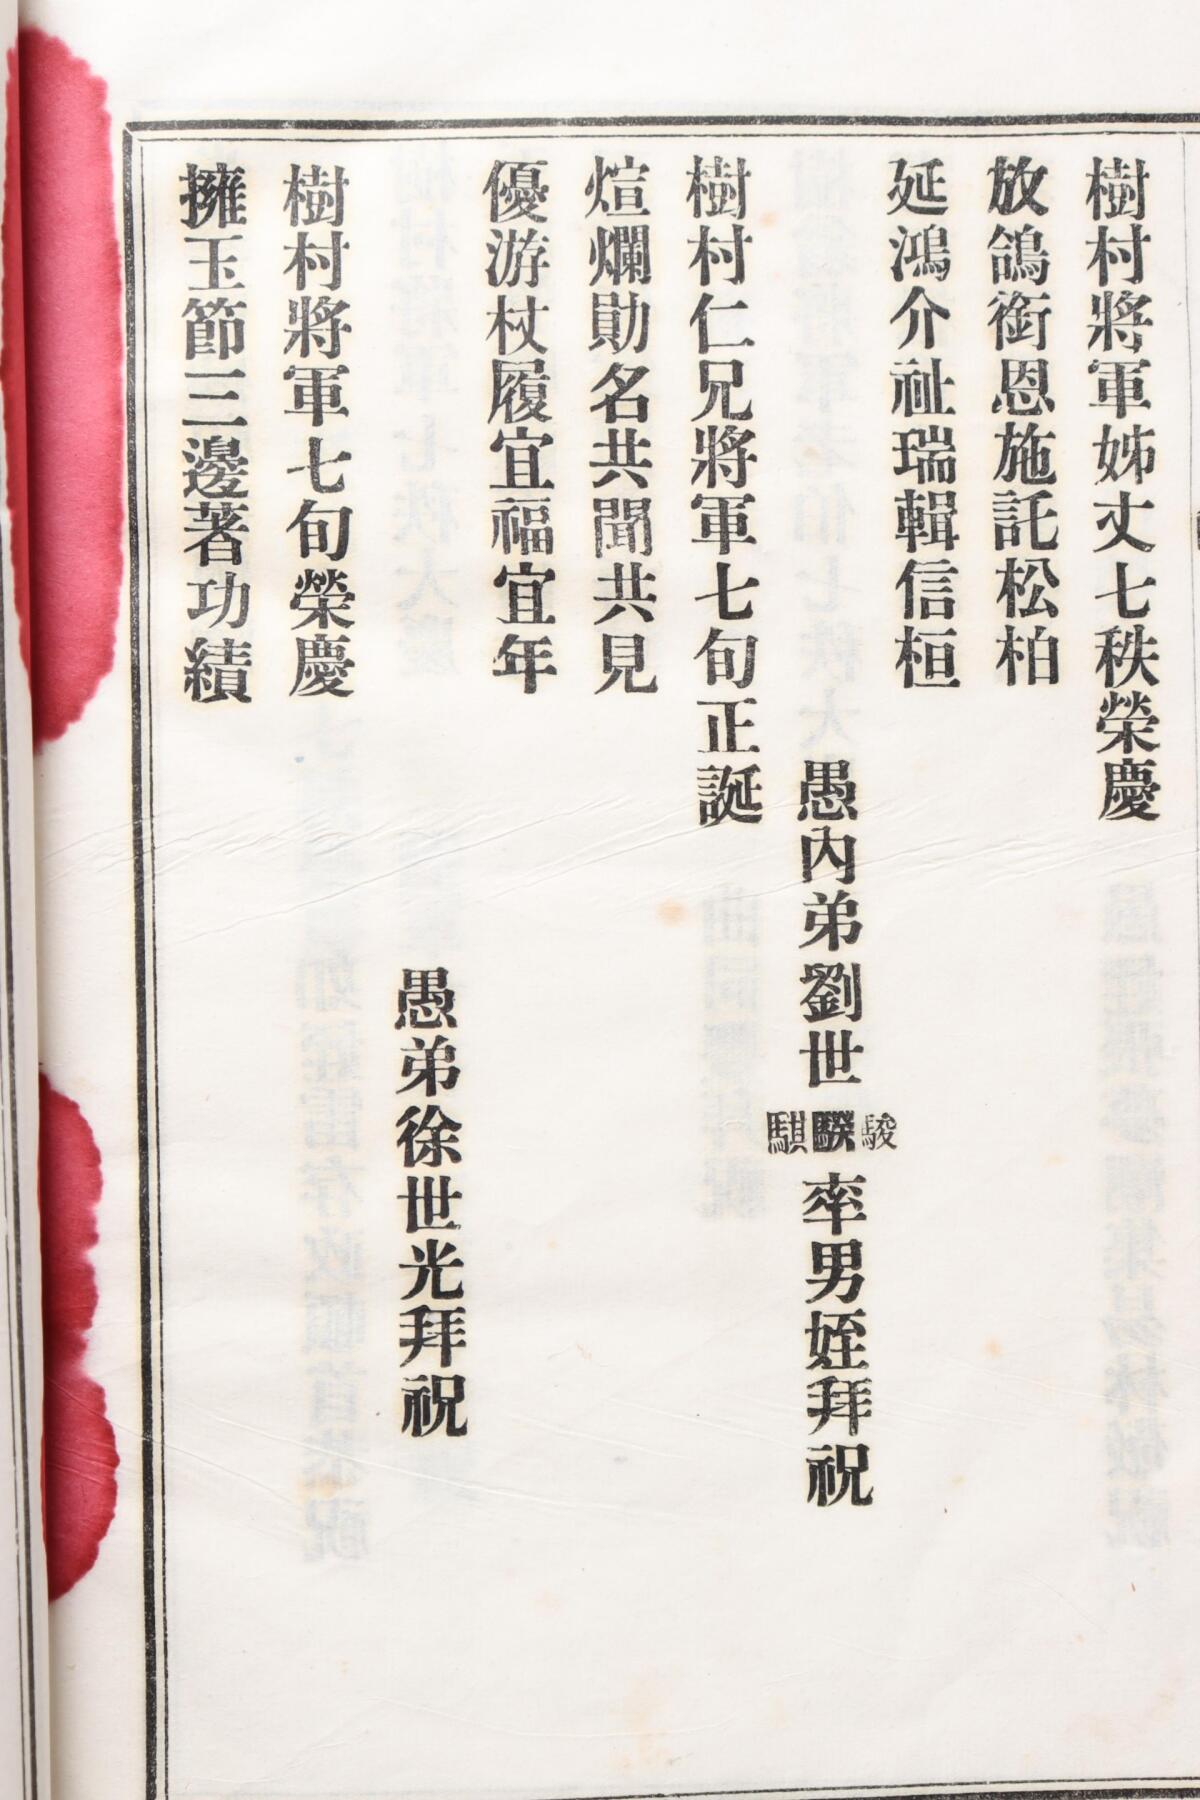 樹村將軍姊丈七秩榮慶
放鴿銜恩施託松柏
延鴻介祉瑞輯信桓
愚內弟劉世駿騤騏率男姪拜祝
樹村仁兄將軍七旬正誕
煊爛勛名共聞共見
優游杖履宜福宜年
愚弟徐世光拜祝
樹村將軍七旬榮慶
擁玉節三邊著功績